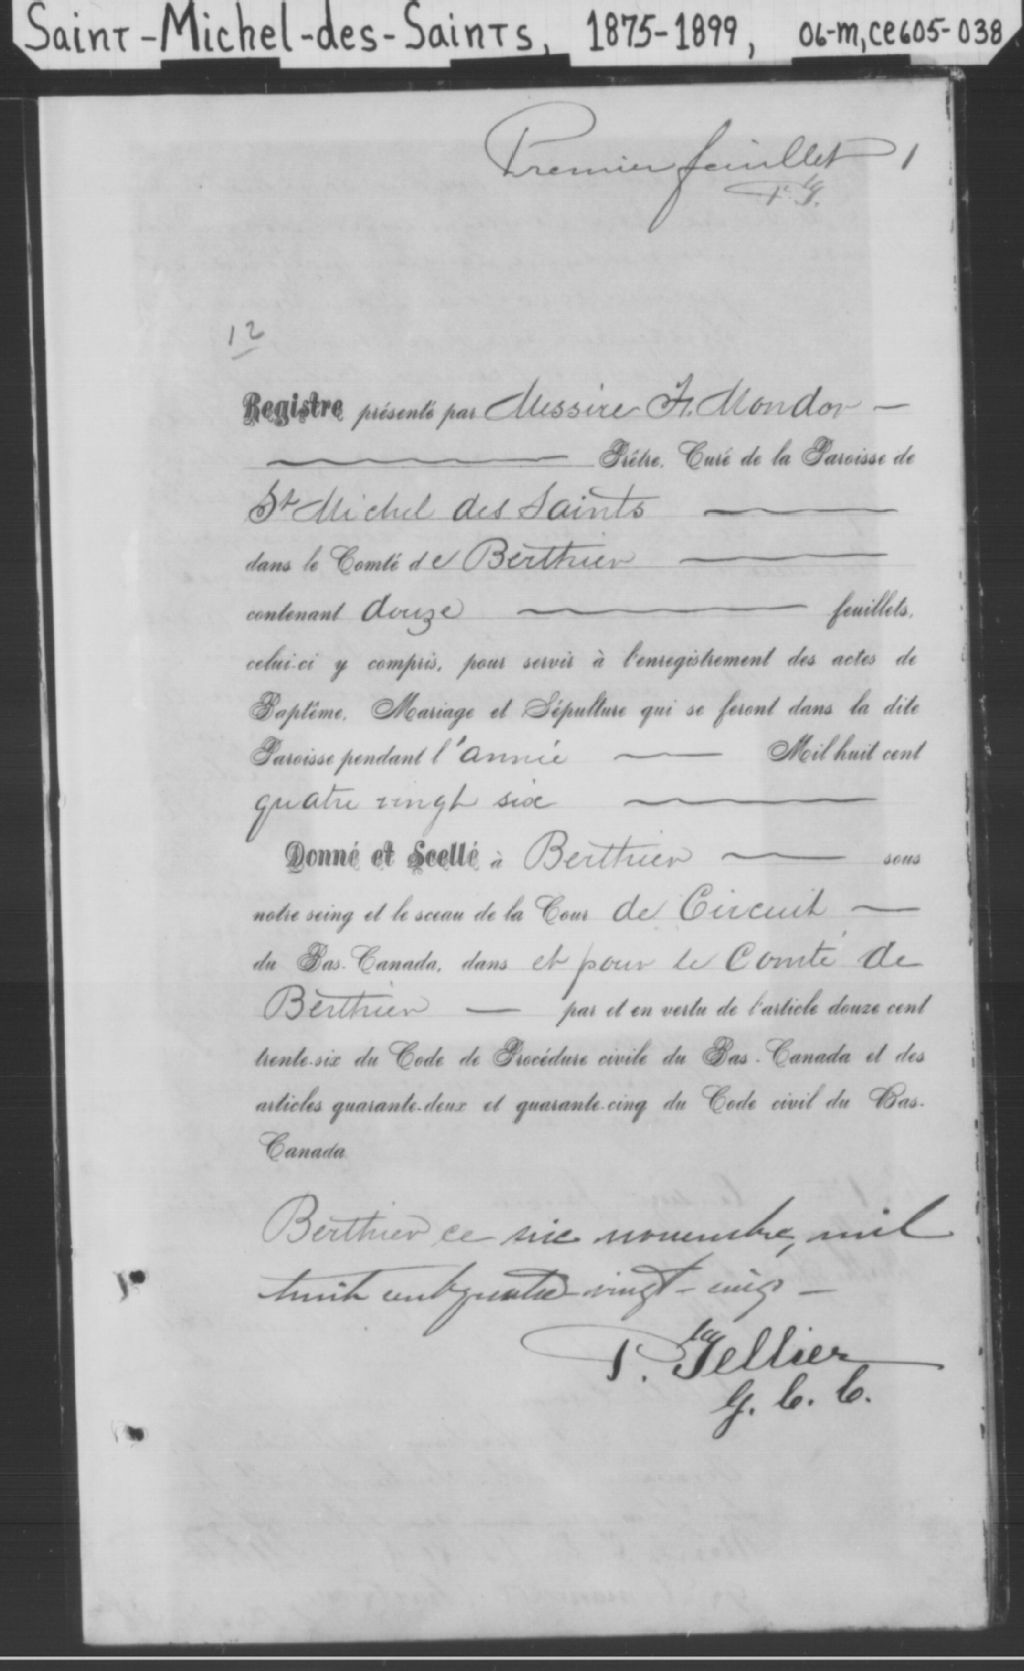 Saint-Michel-des-Saints, 1875-1899, 06-M, CE605-038
Premier feuillet 1
P. T.
12
Registre présenté par Messire F. Mondor —
Prêtre, Curé de la Paroisse de
St Michel des Saints
dans le Comté de Berthier
contenant douze feuillets,
celui-ci y compris, pour servir à l'enregistrement des actes de
Baptême, Mariage et Sépulture qui se feront dans la dite
Paroisse pendant l'année Mil huit cent
quatre vingt six
Donné et Scellé à Berthier sous
notre seing et le sceau de la Cour de Circuit —
du Bas-Canada, dans et pour le Comté de
Berthier — par et en vertu de l'article douze cent
trente-six du Code de Procédure civile du Bas-Canada et des
articles quarante-deux et quarante-cinq du Code civil du Bas-
Canada
Berthier ce six novembre, mil
huit cent quatre vingt-cinq —
P. Tellier
G. C. C.